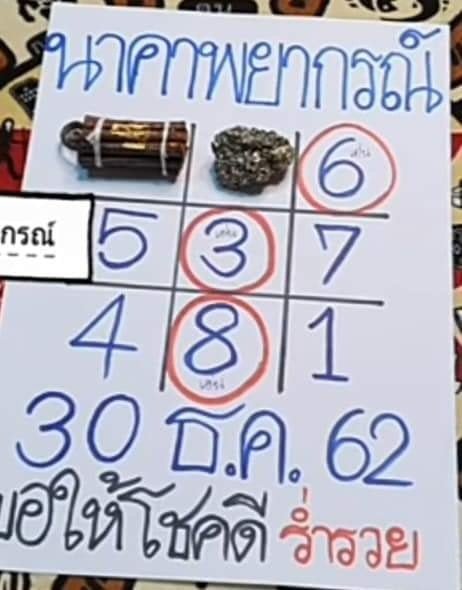 นาคาพยากรณ์
6 เด่น
กรณ์ 5 3 เด่น 7
4 8 เด่น 1
30 ธ.ค. 62
ขอให้โชคดี ร่ำรวย